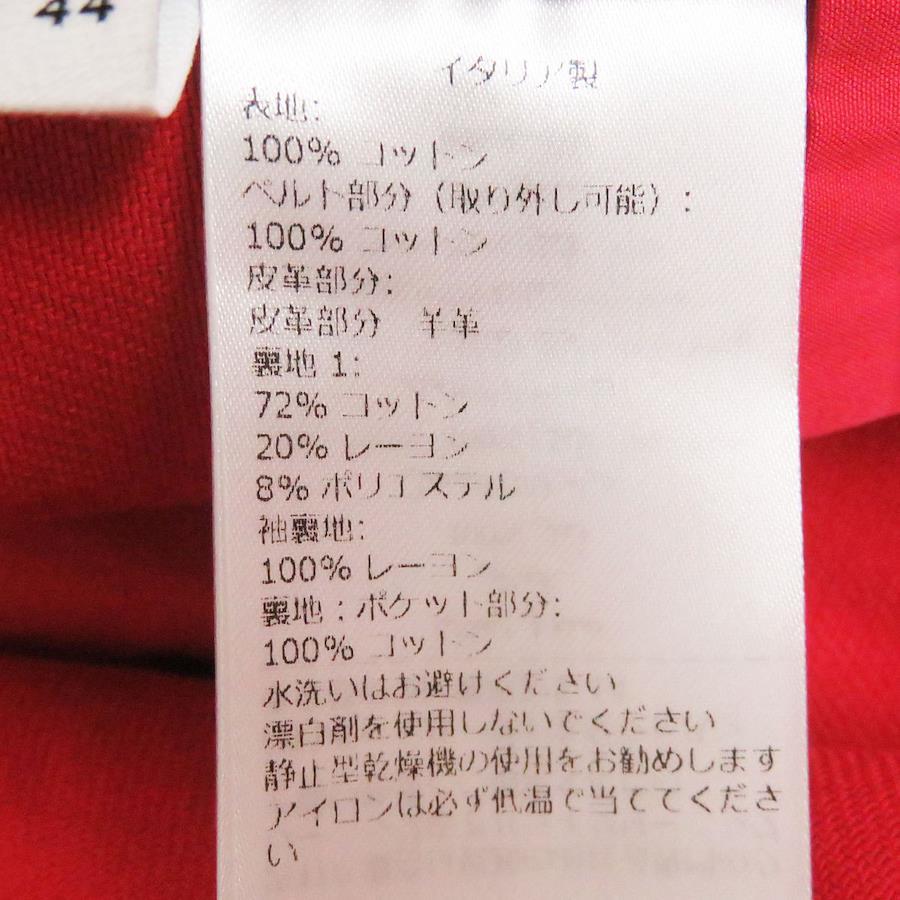 44
イタリア製
表地:
100% コットン
ベルト部分（取り外し可能）:
100% コットン
皮革部分:
皮革部分 羊革
裏地 1:
72% コットン
20% レーヨン
8% ポリエステル
袖裏地:
100% レーヨン
裏地：ポケット部分:
100% コットン
水洗いはお避けください
漂白剤を使用しないでください
静止型乾燥機の使用をお勧めします
アイロンは必ず低温で当ててくださ
い